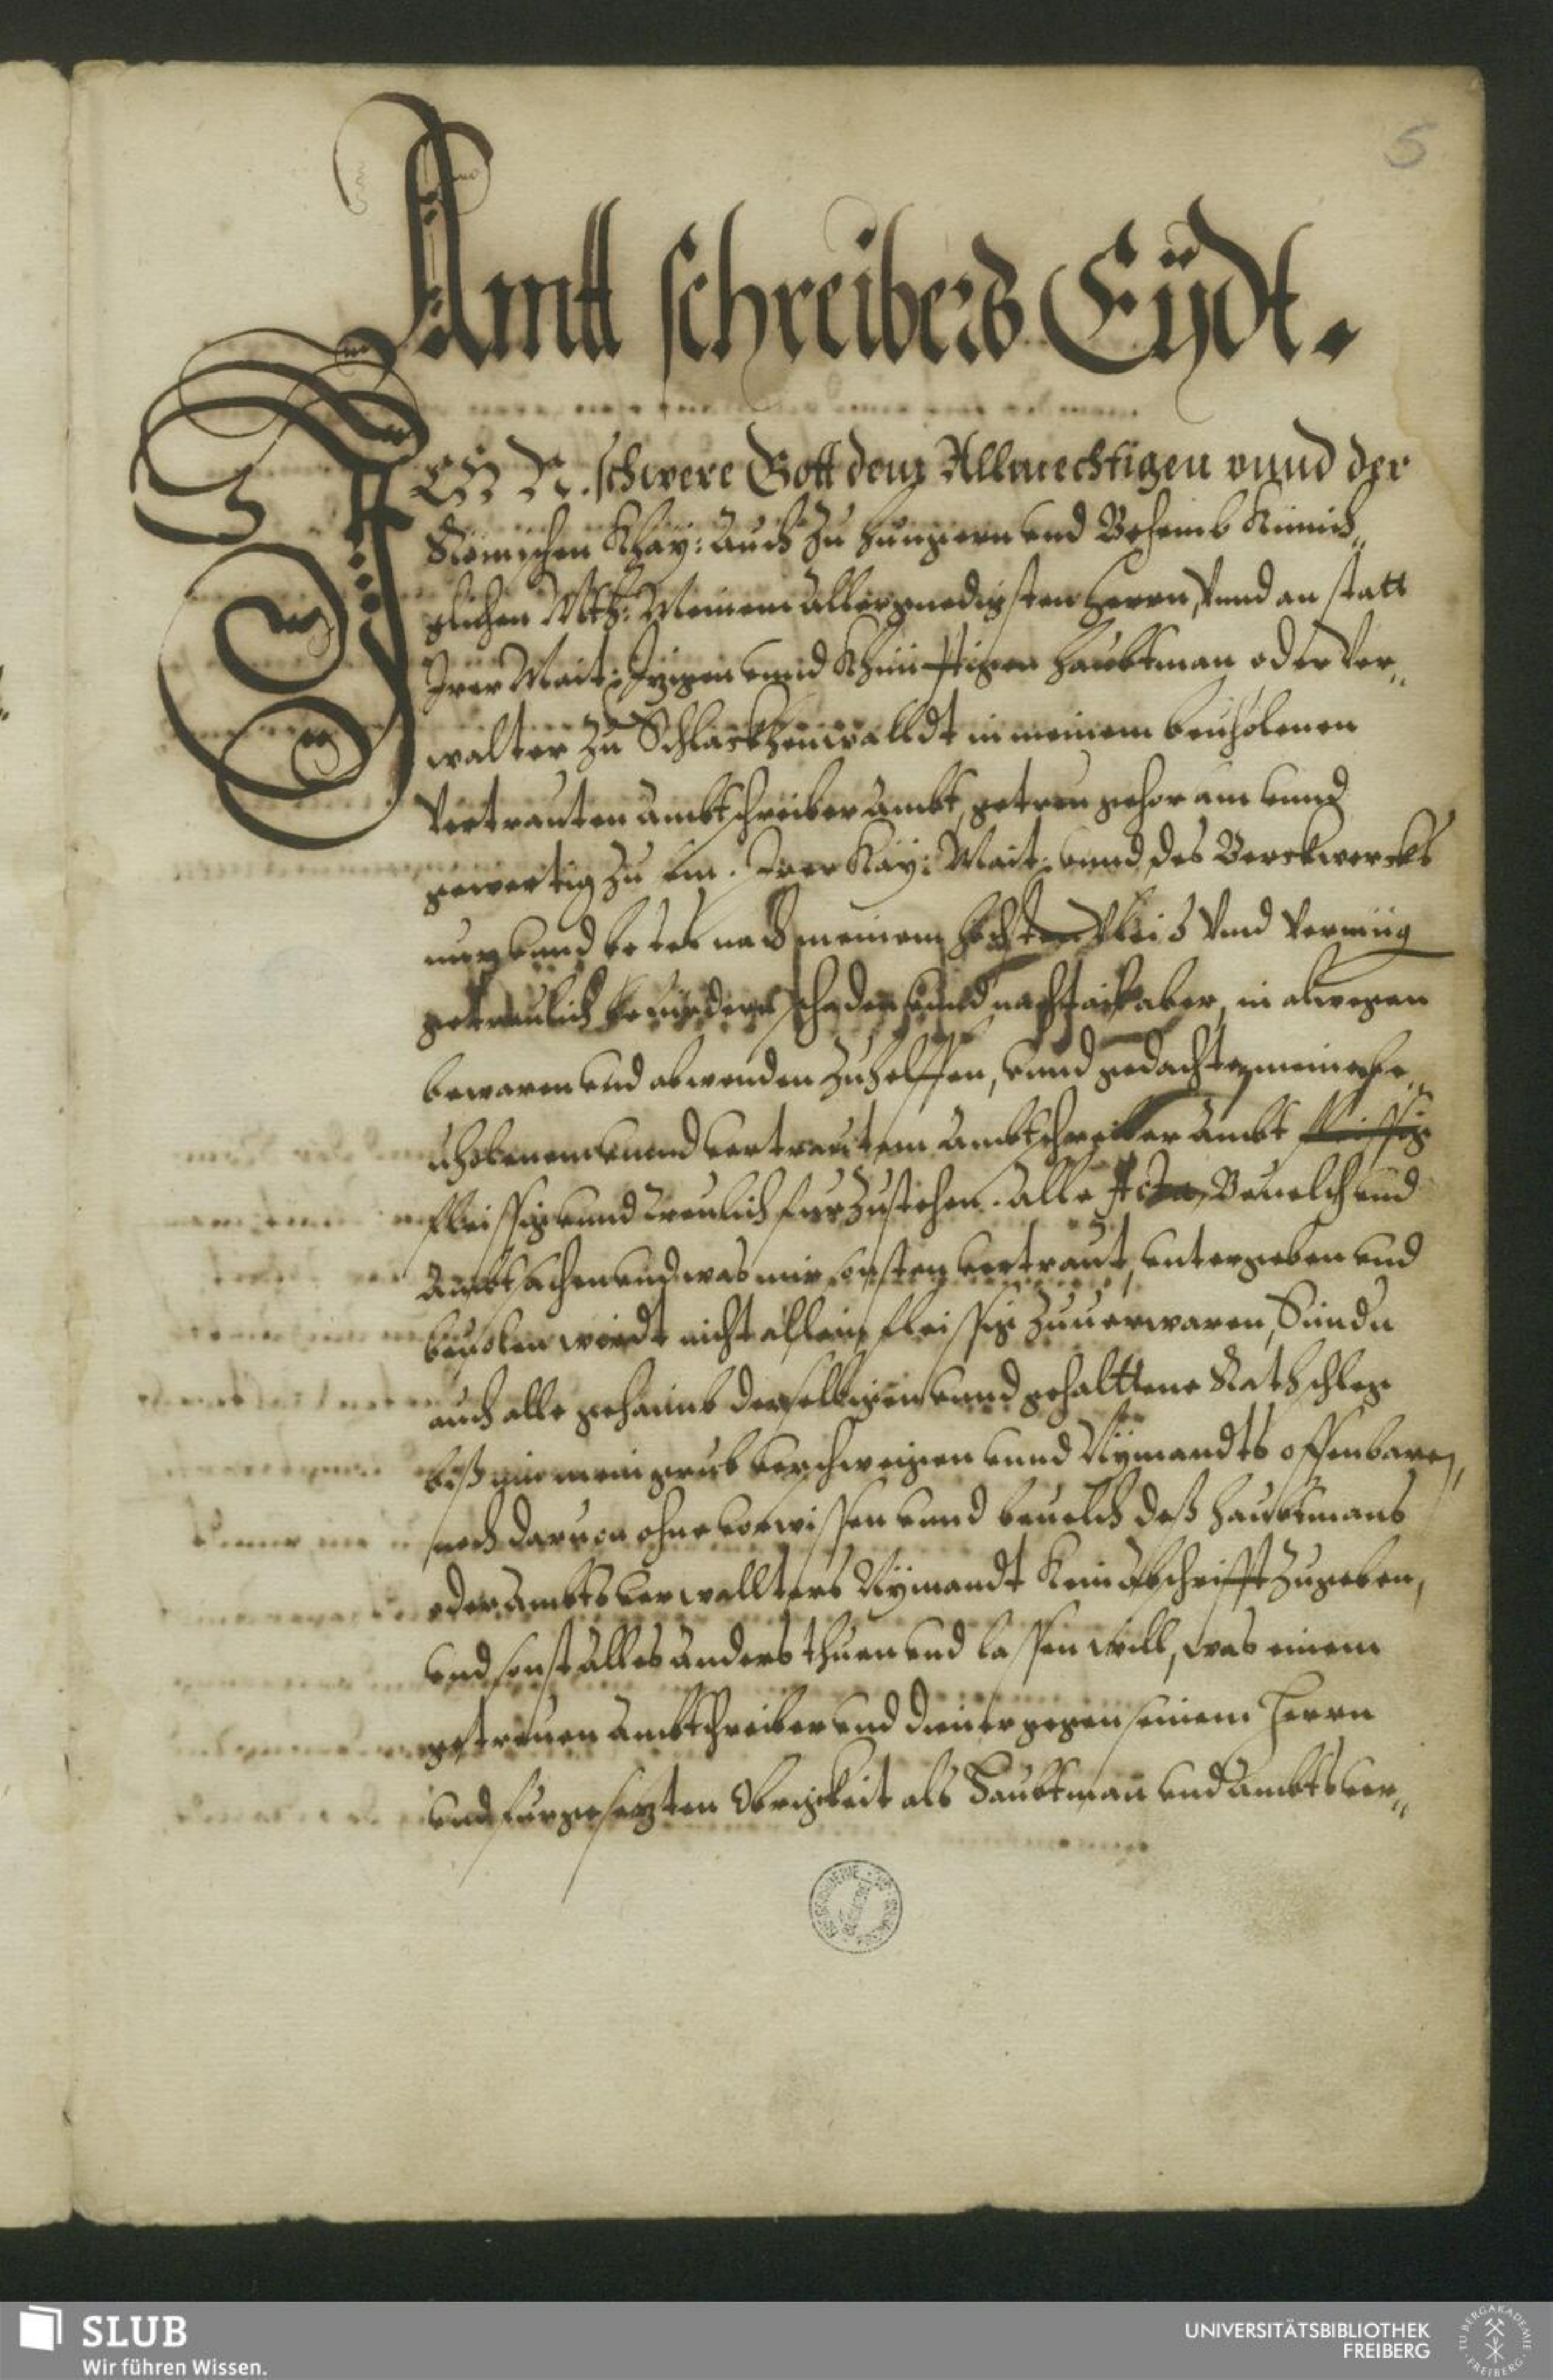 5
Amtt schreibers Eÿdt.
ICH N. schwere Gott dem Allmechtigen vnnd der
Römischen Khaÿ: auch zu Hungern vnd Behemb Künich„
glichen Mtt: Meinem allergnedigsten Herrn, Vnnd an statt
Irer Mait: Izigen vnnd Khünfftigen Haubtman oder Ver„
walter zu Schlackhenwalldt in meinem beuholenen
Vertrauten ambtschreiber ambt, getreu gehorsam vnnd
gewertig zu sein. Irer Kay: Mait: vnnd des Berckwercks
nuz vnnd bestes nach meinem höchsten Vleis Vnd Vermüg
getreulich befürdern schaden vnnd nachtail aber, in alwegen
bewaren vnd abwenden zuhelffen, vnnd gedachtem meinem be„
uholenem vnnd vertrautem ambtschreiber ambt fleissig
fleissig vnnd treulich furzustehen. alle Acta, Beuelch vnd
Ambtsachen vnd was mir sonsten vertraut, untergeben vnd
beuolen wirdt nicht allein fleissig zuuerwaren, Sundern
auch alle gehaimb derselbigen vnnd gehalttene Rathschleg
biß inn mein grub verschweigen vnnd Nÿmandts offenbaren,
noch daruon ohne vorwissen vnnd beuelch deß Haubtmans
oder Ambtsverwallters Nÿmandt Kein Abschrifft zugeben,
vnd sonst alles anders thuen vnd lassen will, was einem
getreuen Ambtschreiber vnd diener gegen seinem Herrn
vnd furgesezten Obrigkeit als Haubtman vnd Ambtsver„
SLUB
Wir führen Wissen.
UNIVERSITÄTSBIBLIOTHEK
FREIBERG
TU BERGAKADEMIE
FREIBERG